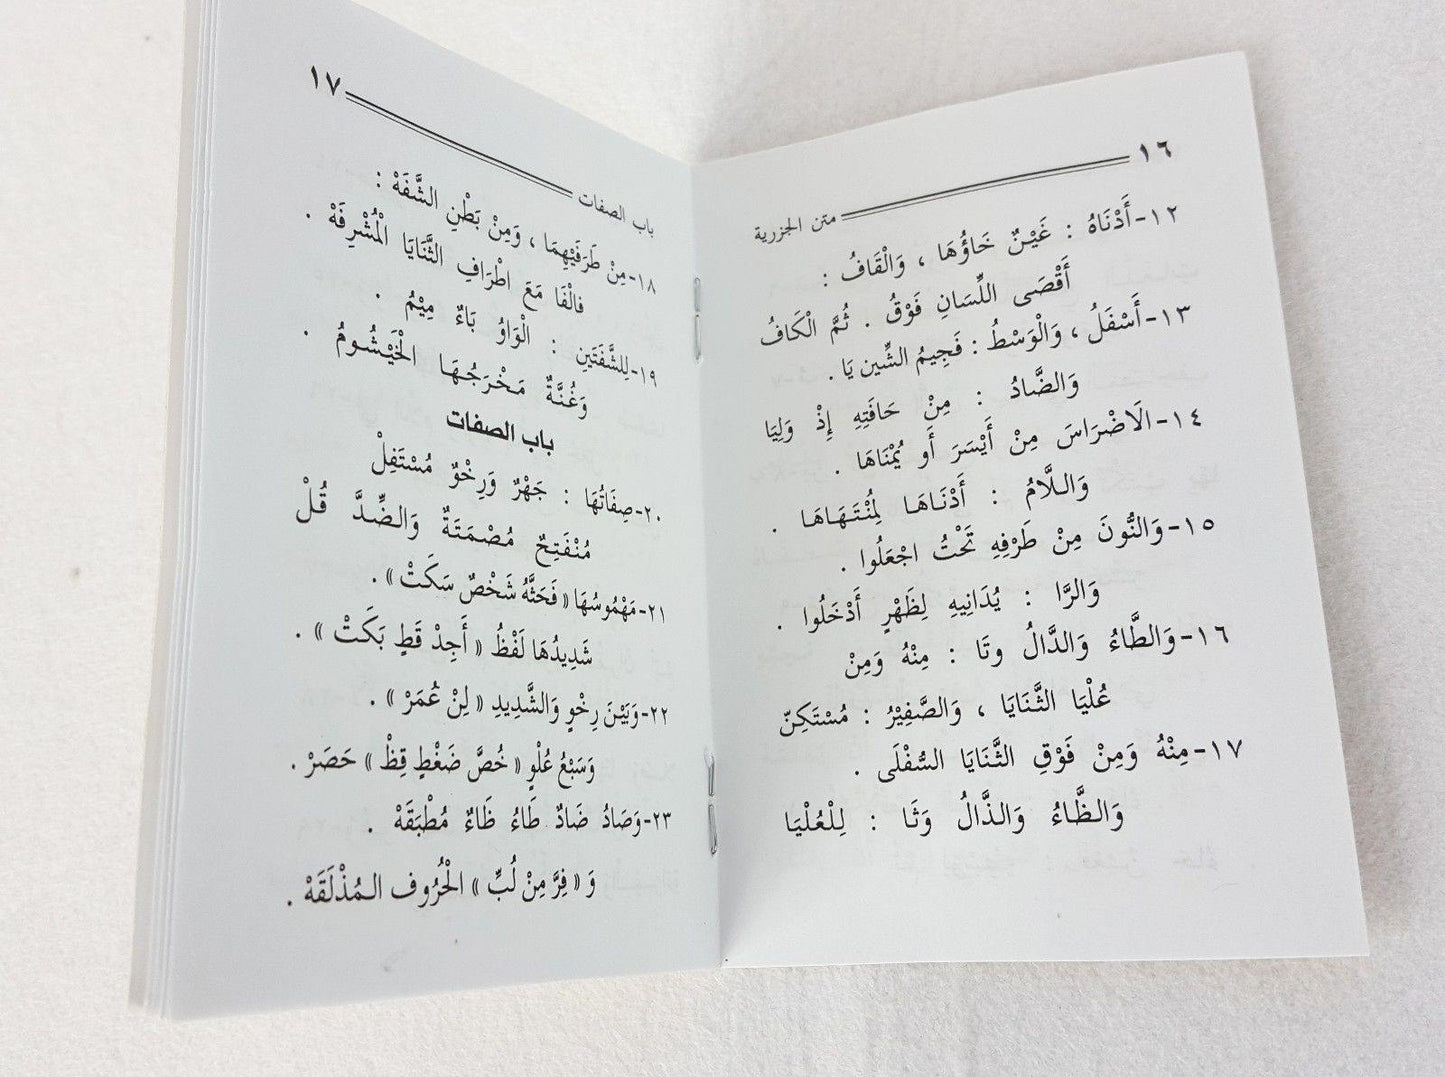 ١٦
متن الجزرية
١٢-أَدْنَاهُ : غَيْنٌ خَاؤُهَا ، وَالْقَافُ :
أَقْصَى اللِّسَانِ فَوْقُ . ثُمَّ الْكَافُ
١٣-أَسْفَلُ ، وَالْوَسْطُ : فَجِيمُ الشِّين يَا .
وَالضَّادُ : مِنْ حَافَتِهِ إِذْ وَلِيَا
١٤-الَاضْرَاسَ مِنْ أَيْسَرَ أَو يُمْنَاهَا .
وَاللَّامُ : أَدْنَاهَا لِمُنْتَهَاهَا .
١٥-وَالنُّونَ مِنْ طَرْفِهِ تَحْتُ اجْعَلُوا .
وَالرَّا : يُدَانِيهِ لِظَهْرٍ أَدْخَلُوا .
١٦-وَالطَّاءُ وَالدَّالُ وتَا : مِنْهُ وَمِنْ
عُلْيَا الثَّنَايَا ، وَالصَّفِيْرُ : مُسْتَكِنّ
١٧-مِنْهُ وَمِنْ فَوْقِ الثَّنَايَا السُّفْلَى .
وَالظَّاءُ وَالذَّالُ وَثَا : لِلْعُلْيَا
١٧
باب الصفات
١٨-مِنْ طَرَفَيْهِمَا ، وَمِنْ بَطْنِ الشَّفَهْ :
فالْفَا مَعَ اطْرَافِ الثَّنَايَا الْمُشْرِفَهْ .
١٩-لِلشَّفَتَيْنِ : الْوَاوُ بَاءٌ مِيْمُ .
وَغُنَّةٌ مَخْرَجُهَا الْخَيْشُومُ .
باب الصفات
٢٠-صِفَاتُهَا : جَهْرٌ وَرِخْوٌ مُسْتَفِلْ
مُنْفَتِحٌ مُصْمَتَةٌ وَالضِّدَّ قُلْ
٢١-مَهْمُوسُهَا « فَحَثَّهُ شَخْصٌ سَكَتْ » .
شَدِيدُهَا لَفْظُ « أَجِدْ قَطٍ بَكَتْ » .
٢٢-وَبَيْنَ رِخْوٍ وَالشَّدِيدِ « لِنْ عُمَرْ » .
وَسَبْعُ عُلْوٍ « خُصَّ ضَغْطٍ قِظْ » حَصَرْ .
٢٣-وَصَادُ ضَادٌ طَاءُ ظَاءٌ مُطْبَقَهْ .
وَ « فِرَّ مِنْ لُبِّ » الْحُرُوف الـمُذْلَقَهْ .